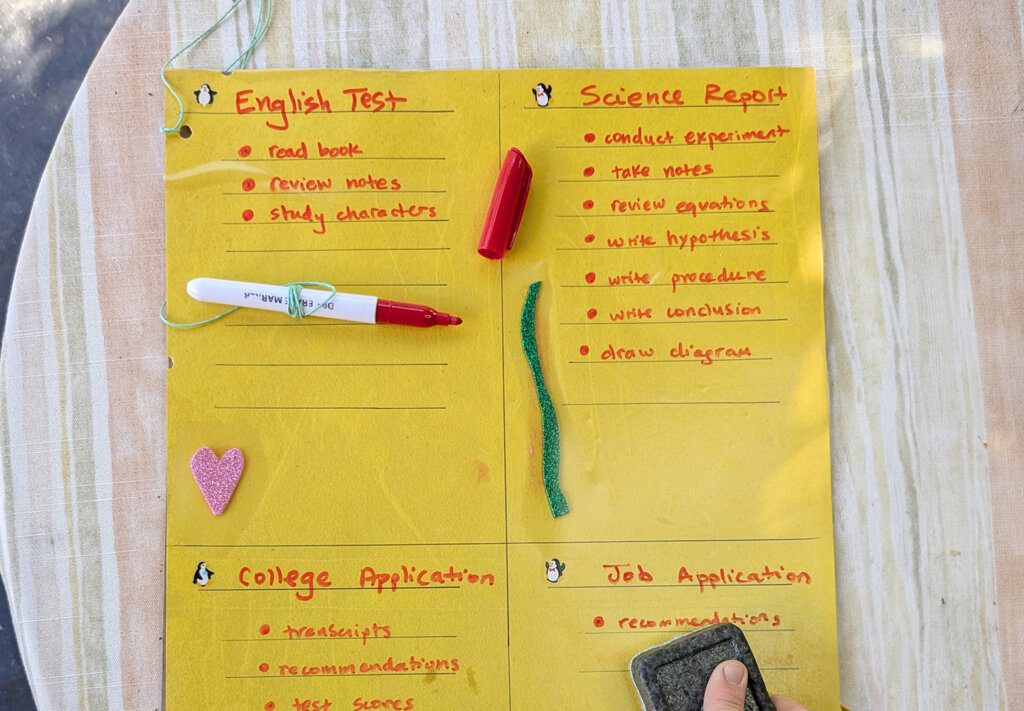 English Test
read book
review notes
study characters
Science Report
conduct experiment
take notes
review equations
write hypothesis
write procedure
write conclusion
draw diagram
College Application
transcripts
recommendations
test scores
Job Application
recommendations